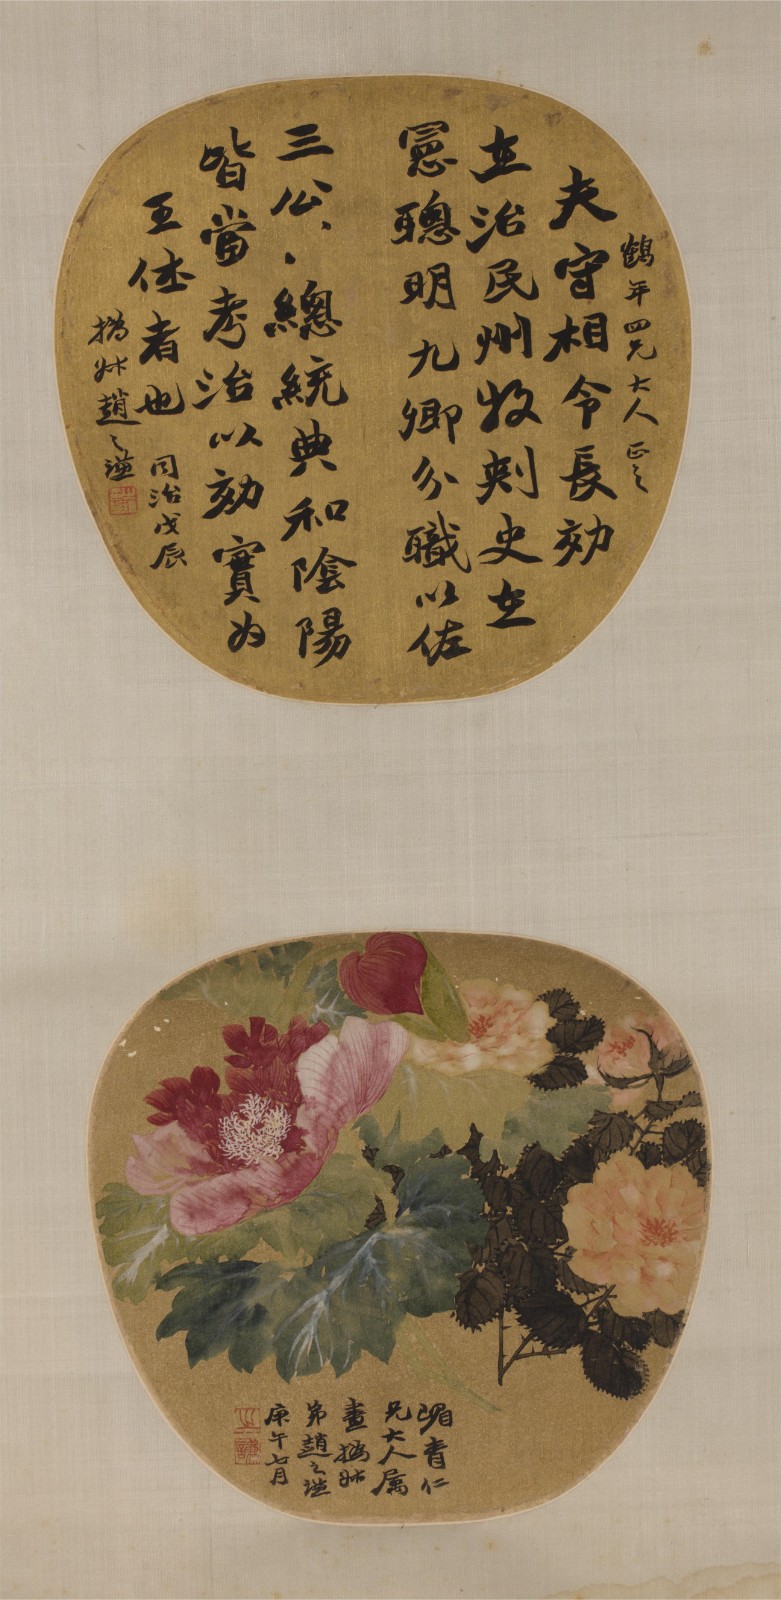 鶴年四兄大人正之
夫守相令長効
在治民州牧刺史在
憲聰明九卿分職以佐
三公、、總統典和陰陽
皆當考治以効實為
王休者也
同治戊辰
撝叔趙之謙
嵋青仁
兄大人屬
畫撝叔
弟趙之謙
庚午七月
之謙